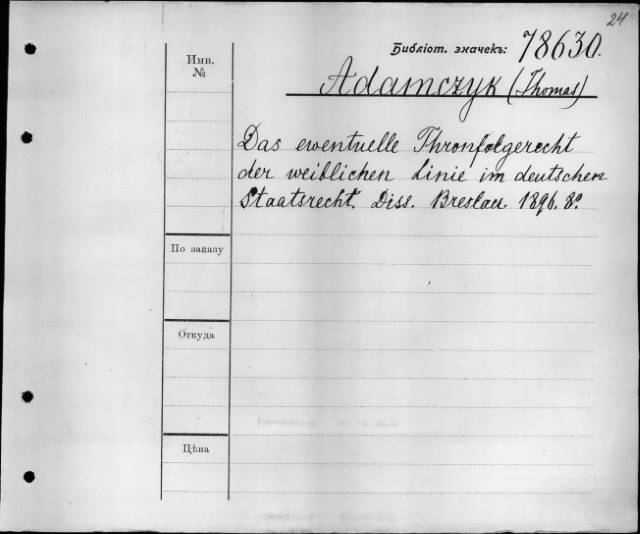 24
Библіот. значекъ: 78630.
Инв.
№
Adamczyk (Thomas)
Das ewentuelle Thronfolgerecht
der weiblichen Linie im deutschen
Staatsrecht. Diss. Breslau. 1896. 8º
По заказу
Откуда
Цѣна